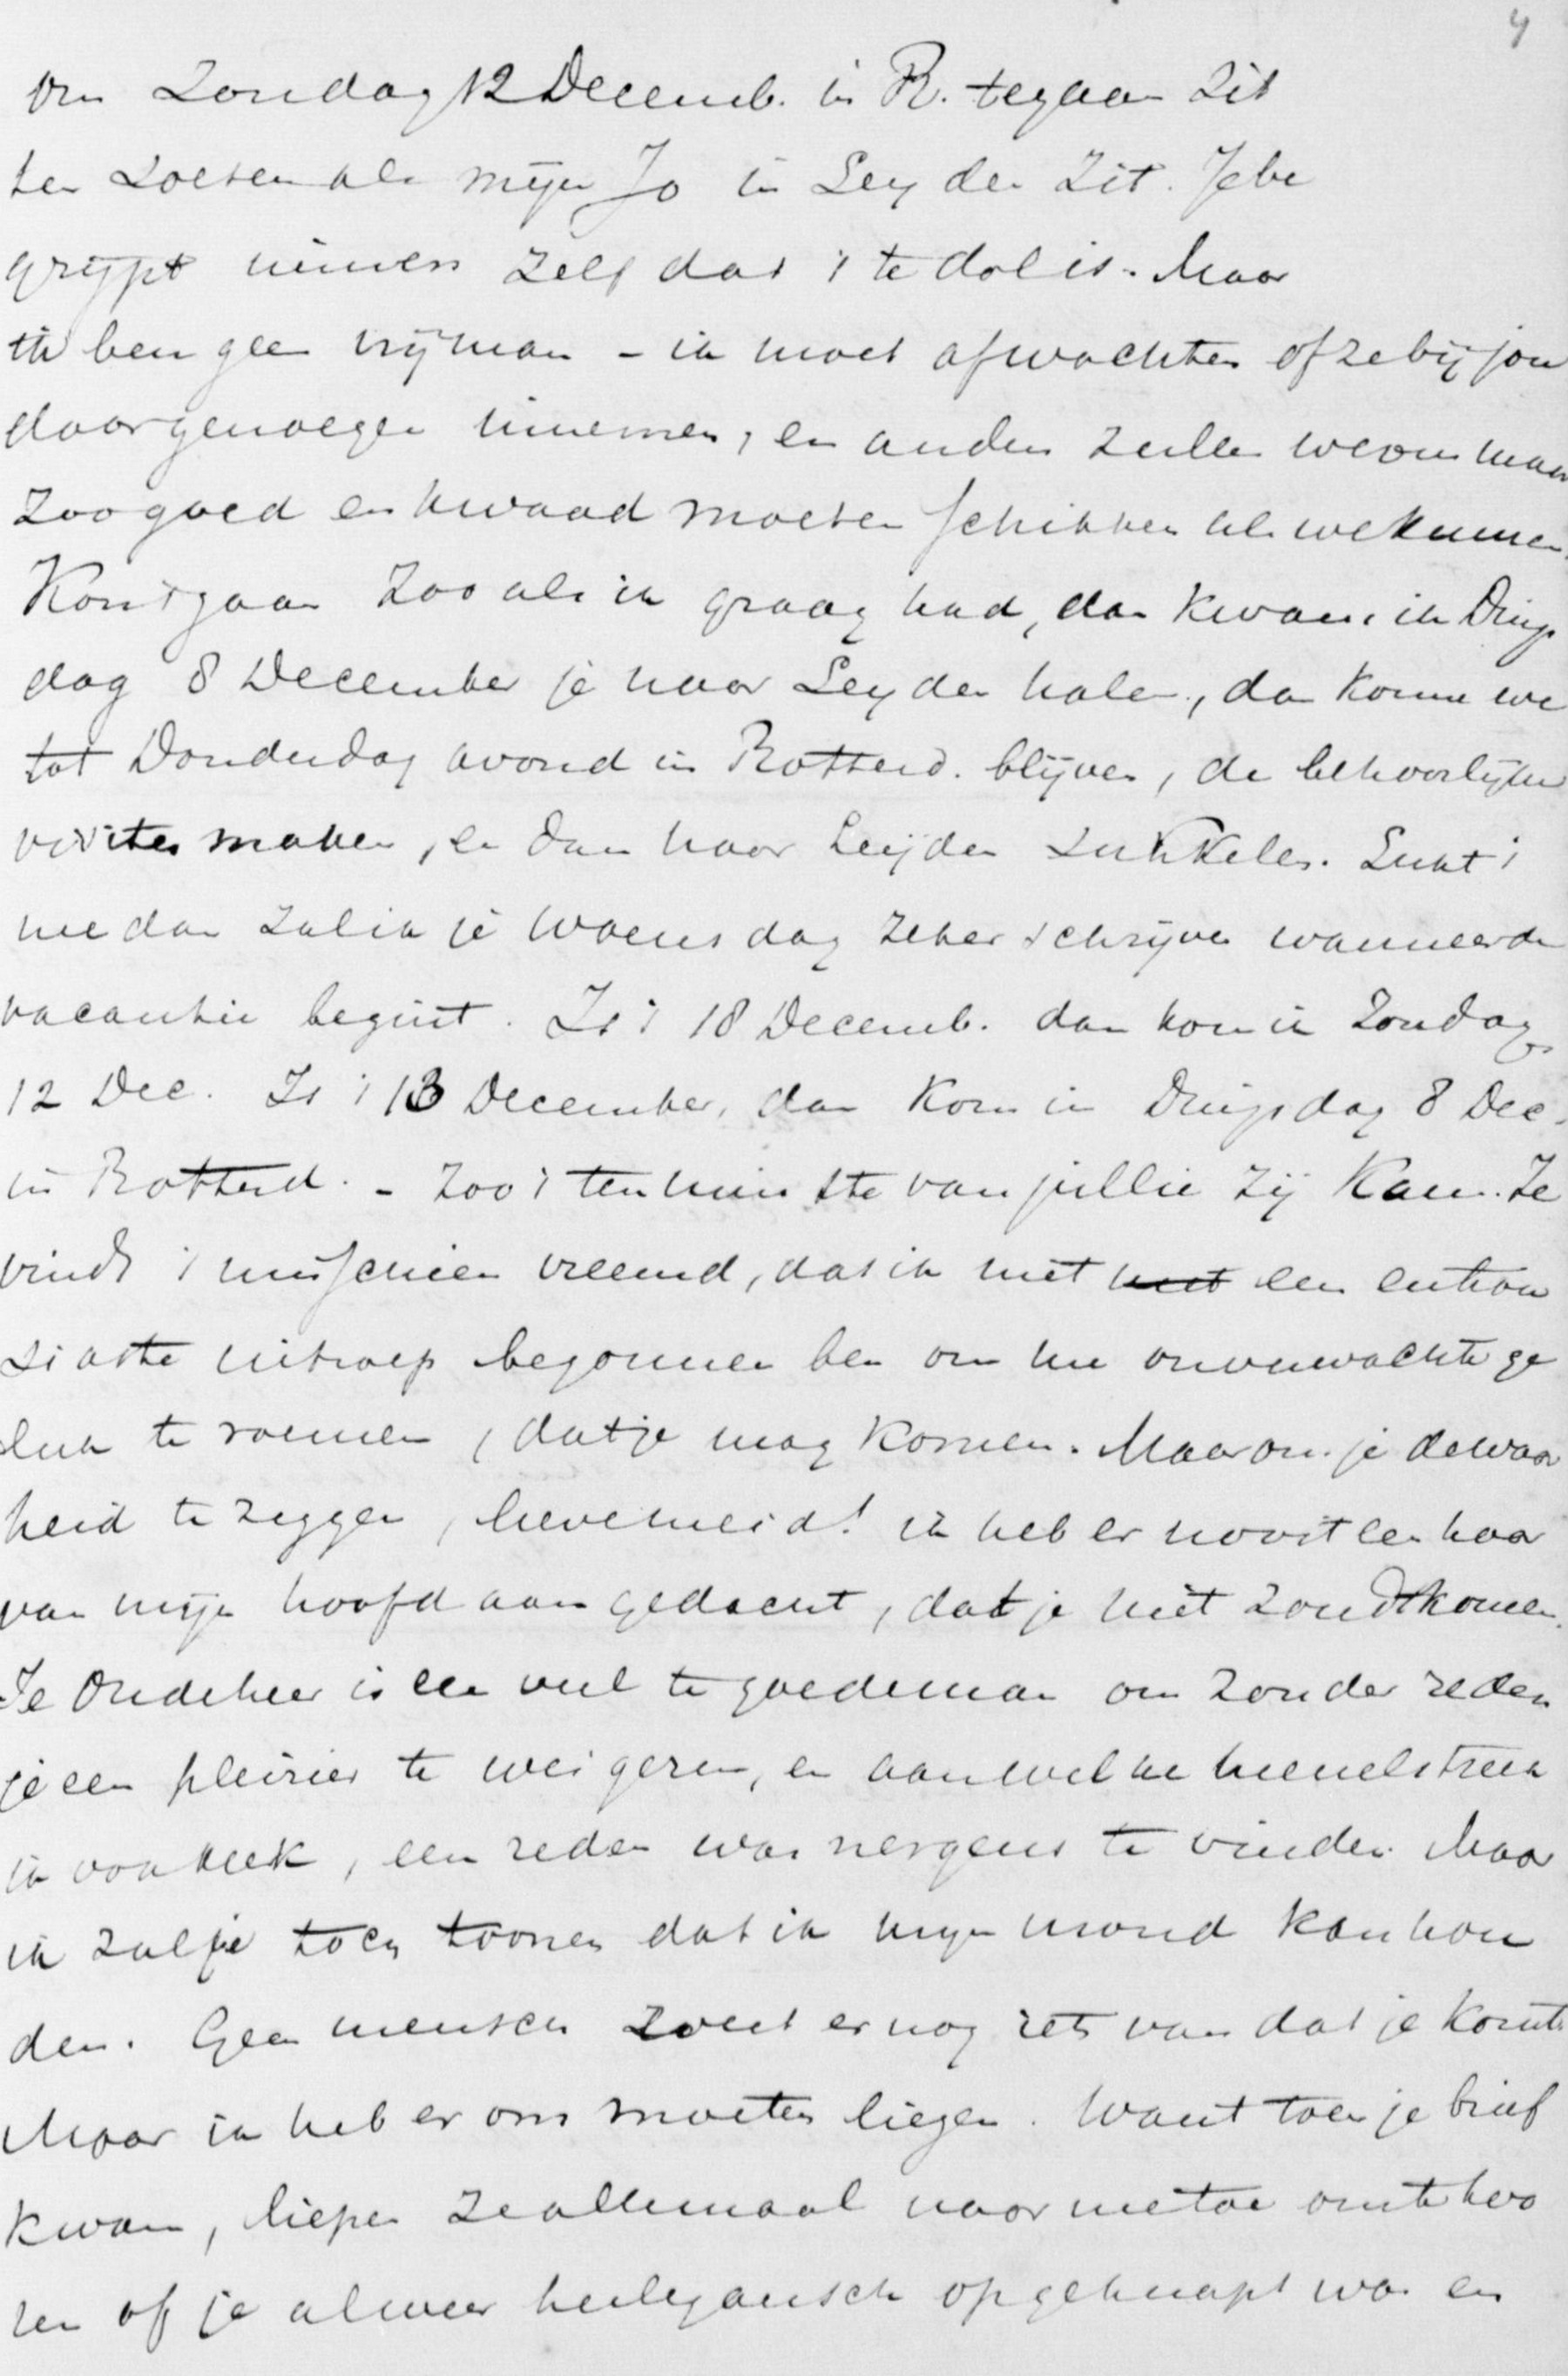 4
om Zondag 12 Decemb. in R. te gaan zit
ten zoeten als mijn Jo in Leyden zit. Je be
grijpt immers zelf dat 't te dol is. Maar
ik ben geen vrij man – ik moet afwachten of ze bij jou
daar genoegen in nemen, en anders zullen we ons maar
zoo goed en kwaad moeten schikken als we kunnen.
Kon 't gaan zooals ik graag had, dan kwam ik Dings
dag 8 December je naar Leyden halen, dan konnen we
tot Donderdag avond in Rotterd. blijven, de behoorlijke
visites maken, en dan naar Leijden sukkelen. Lukt 't
nee dan zal ik je Woensdag zeker schrijven wanneer de
vacantie begint. Is 't 18 Decemb. dan kom ik Zondag
12 Dec. Is 't 13 December, dan kom ik Dingsdag 8 Dec.
in Rotterd. – Zoo 't ten minste van jullie zij kan. Je
vindt 't misschien vreemd, dat ik niet met een enthou
siaste uitroep begonnen ben om me onverwachte ge
luk te roemen, dat je mag komen. Maar om je de waar
heid te zeggen, lieve meid! ik heb er nooit een haar
van mijn hoofd aan gedacht, dat je niet zoudt komen.
Je Oudeheer is een veel te goede man om zonder reden
je een pleizier te weigeren, en aan welke hemelstreek
ik ook keek, een reden was nergens te vinden. Maar
ik zal je toch toonen dat ik mijn mond kan hou
den. Geen mensch weet er nog iets van dat je komt.
Maar ik heb er om moeten liegen. Want toen je brief
kwam, liepen ze allemaal naar me toe om te hoo
ren of je alweer heelegansch opgeknapt was en